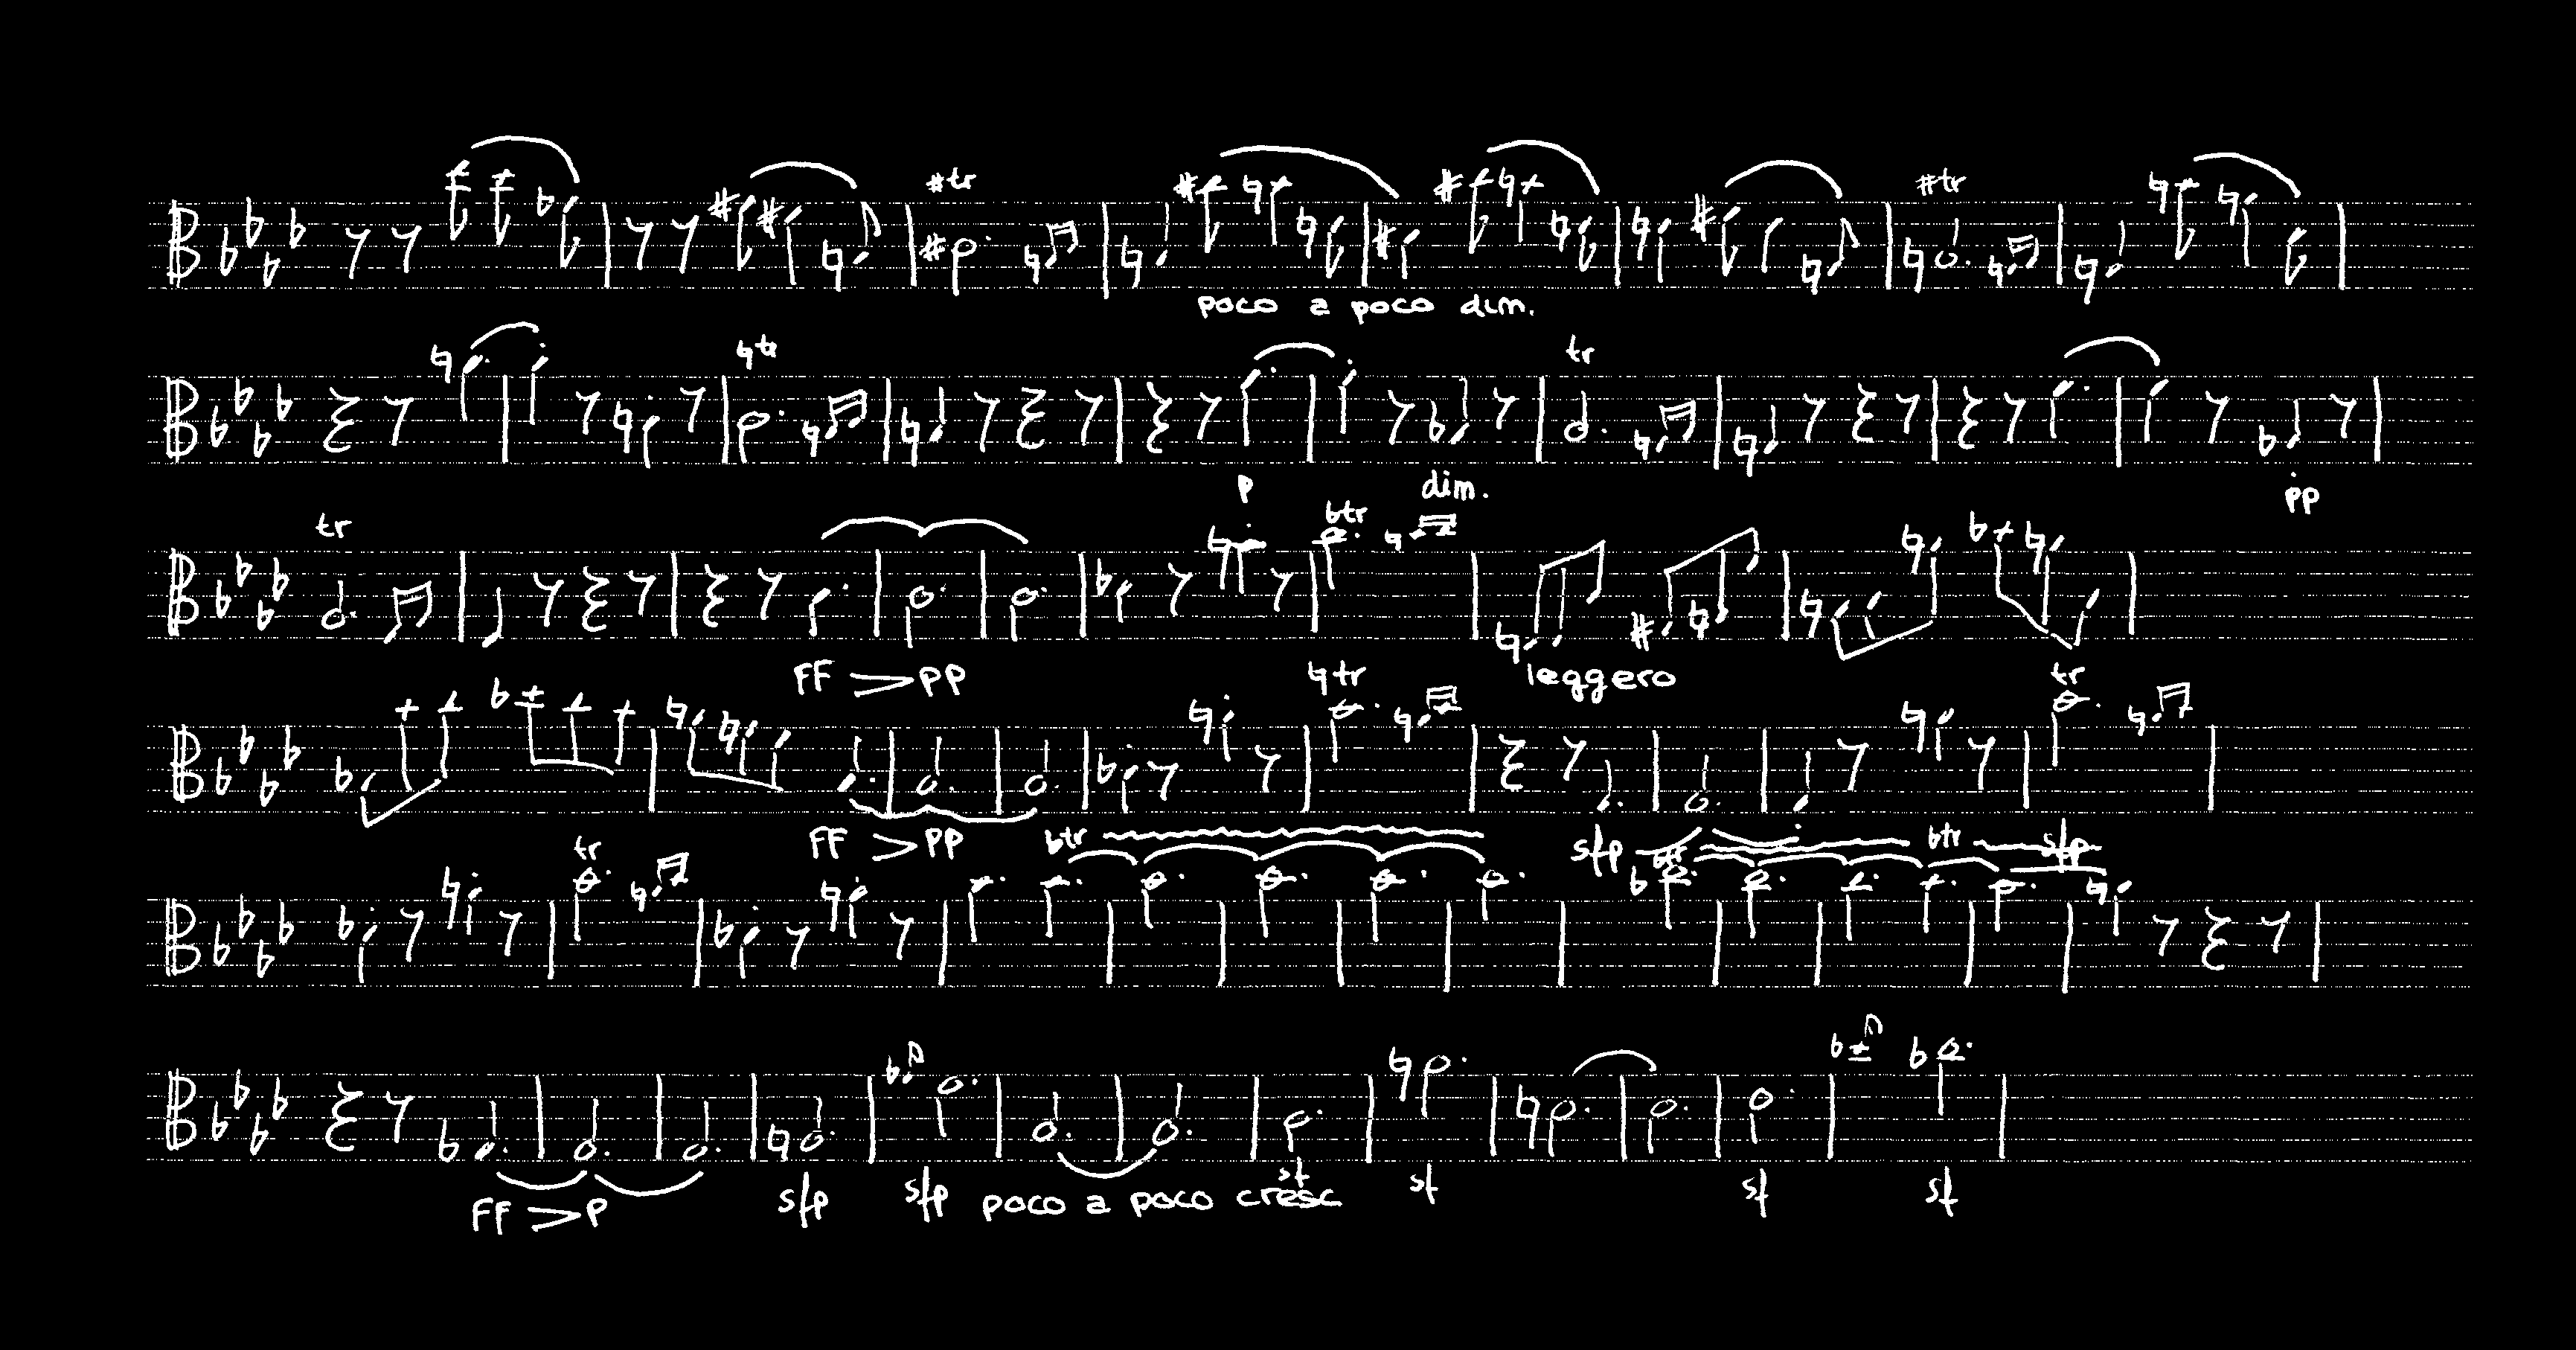 tr tr
poco a poco dim.
tr tr
p dim. pp
tr tr
FF PP leggero
tr tr
FF PP
tr btr sfp btr btr sfp
FF P sfp sfp poco a poco cresc sf sf sf sf